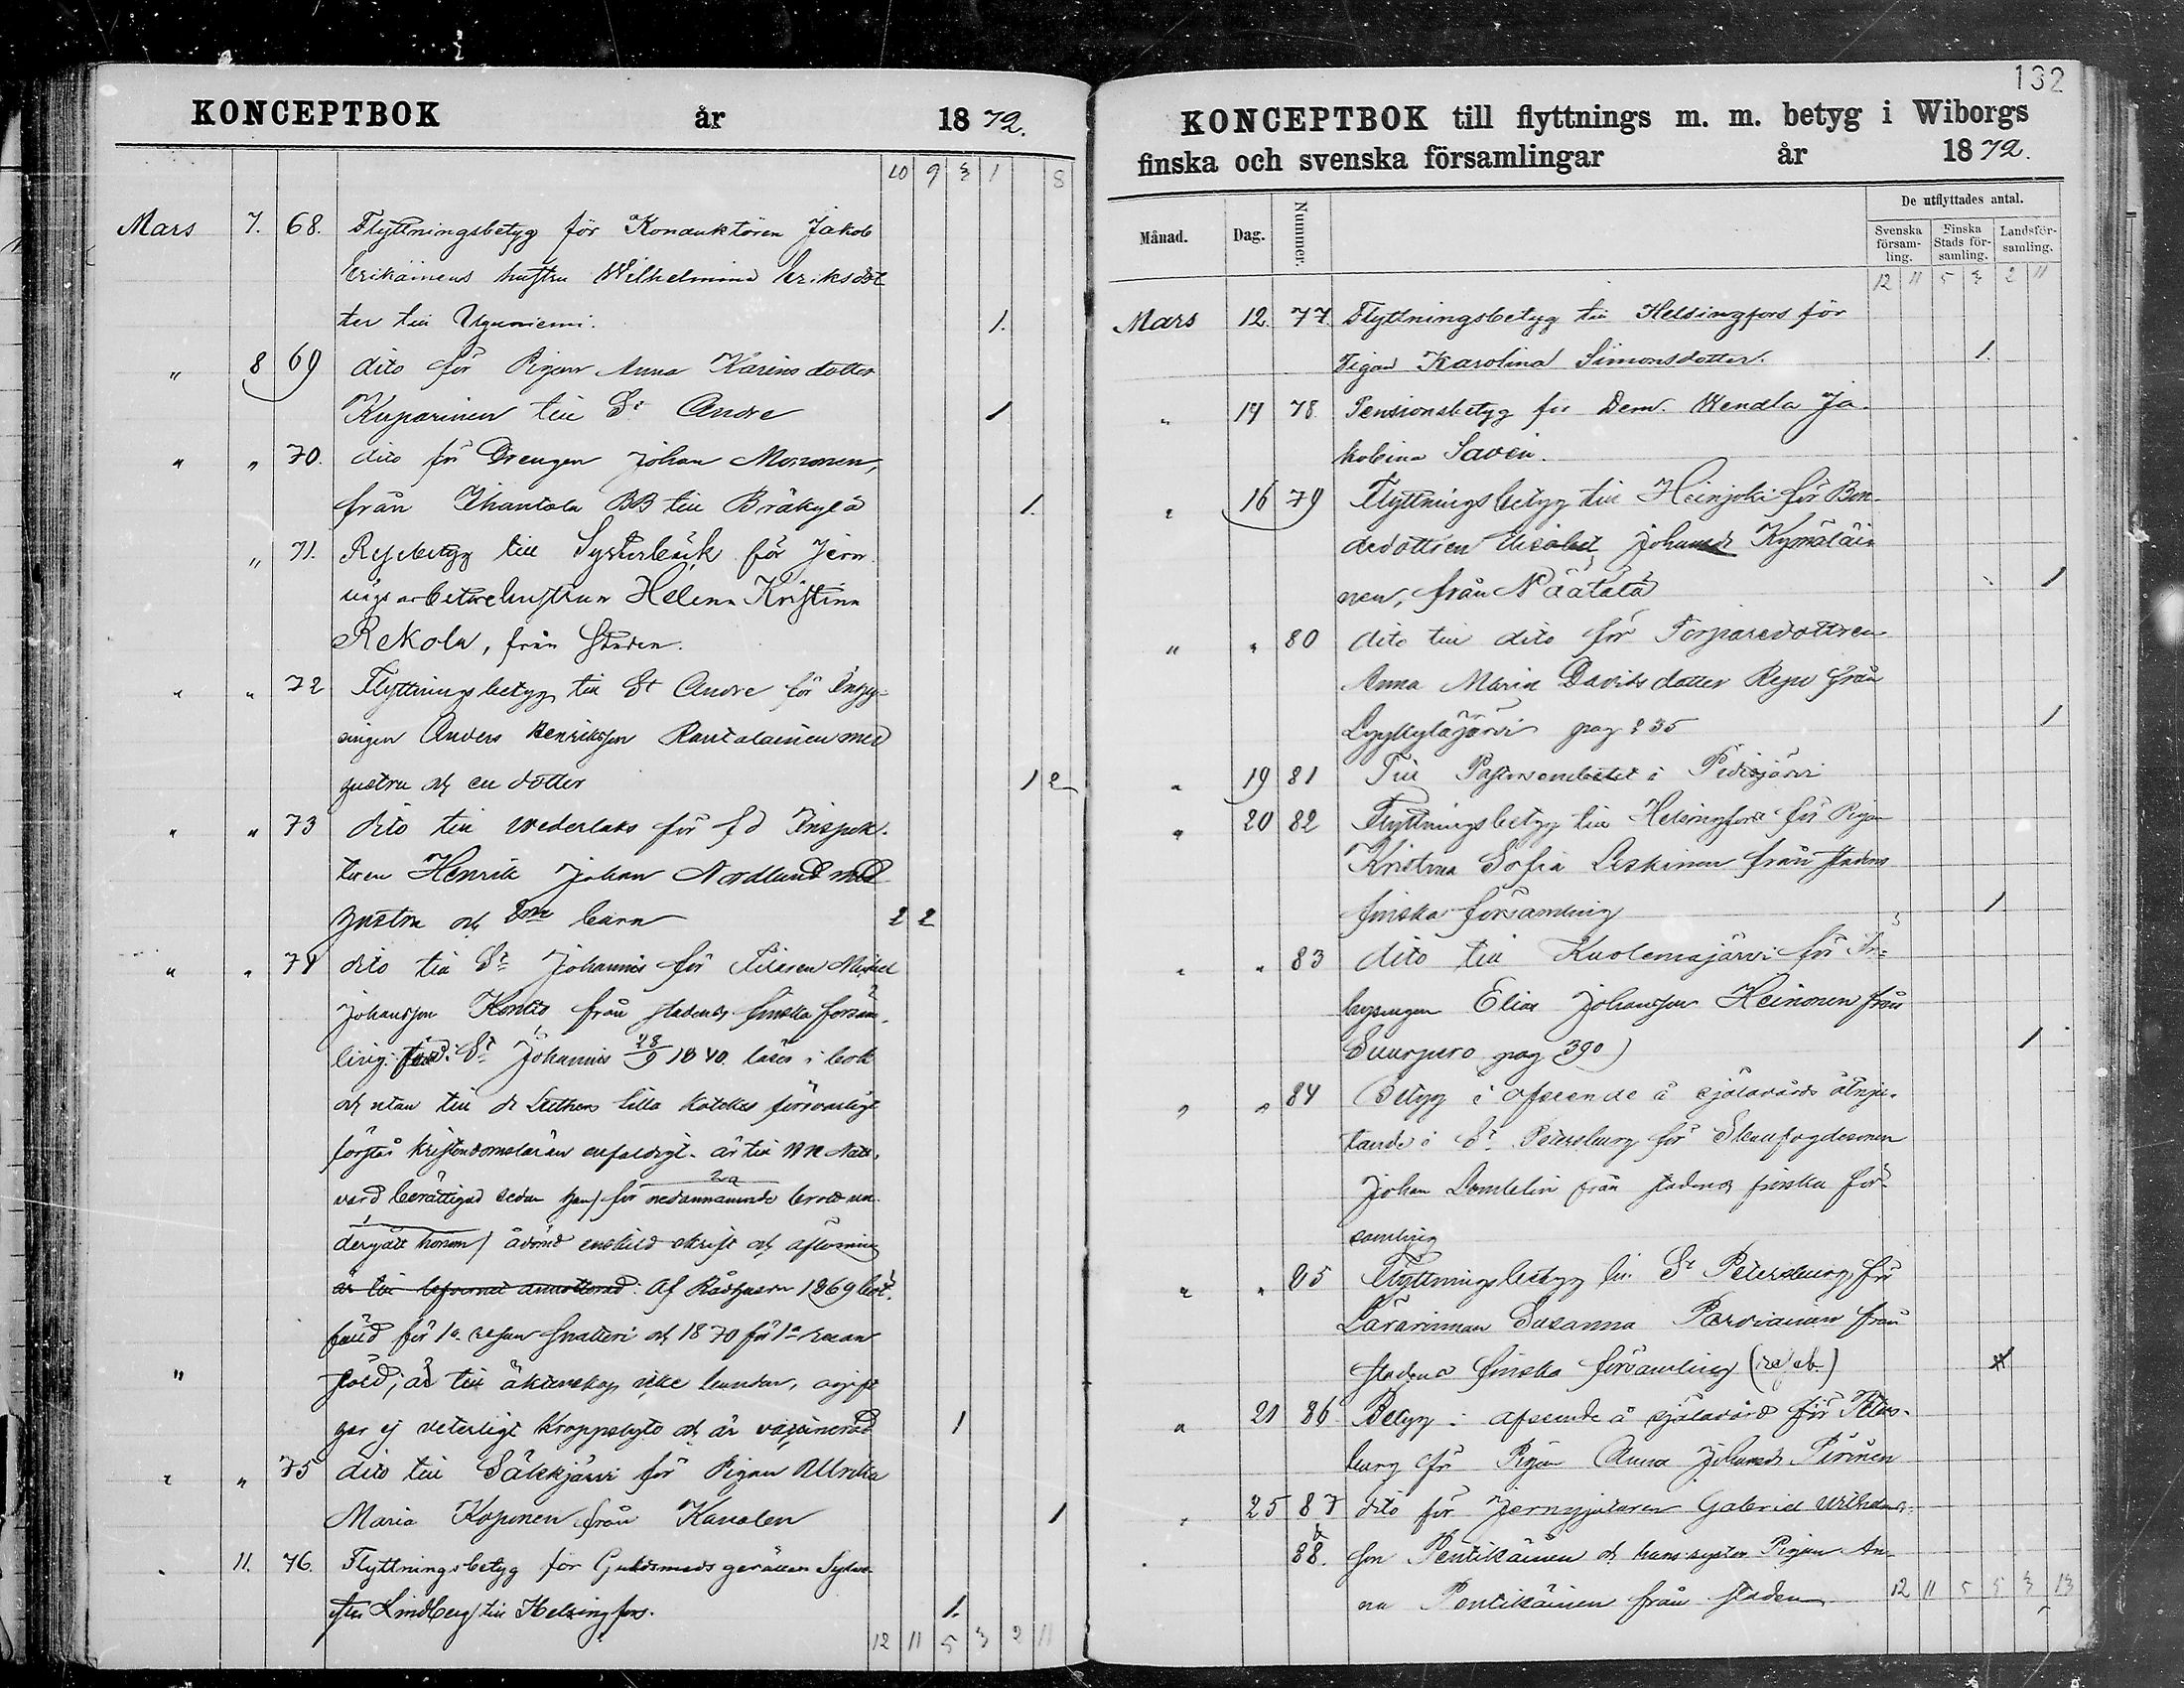 KONCEPTBOK år 1872.
10 9 3 1 8
Mars 7. 68. Flyttningsbetyg för Konduktören Jakob
Erikäinens hustru Wilhelmina Eriksdot
ter till Uguniemi. 1.
" 8 69 dito för Pigan Anna Karins dotter
Kirparinen till St Andre 1
" " 70. dito för Drengen Johan Mononen,
från Ihantala BB till Bräkylä 1.
" 71. Resebetyg till Systerbäck för Jern
vägsarbetarehustrun Helena Kristina
Rekola, från Staden.
" " 72 Flyttningsbetyg till St Andre för Inhy-
singen Anders Henriksson Rautalainen med
hustru och en dotter 1 2
" " 73 dito till Wederlaks för f d Inspek-
toren Henrik Johan Nordlund med
hustru och barn 2 2
" " 74 dito till St Johannis för Filaren Mikael
Johansson Kontio från stadens finska försam-
ling. född i St Johannis 28/9 1840. läser i bok
och utan till Dr Luthers lilla katekes försvarligt
förstår kristendomsläran enfaldigt. är till HH Natt-
vard berättigad sedan han för nedannämnde brott un-
dergått honom ådömd enskild skrift och aflösning
är till lefvernet annotterad. Af Rådhusrn 1869 böt-
fäld för 1a resan snatteri och 1870 för 1a resan
" stöld, är till äktenskap icke bunden, avgift
har ej veterligt kroppslyte och är vaccinerad 1
" " 75 dito till Säkkjärvi för Pigan Ulrika
Maria Koponen från Kanalen 1
" 11. 76. Flyttningsbetyg för Guldsmeds gesällen Sylve-
ster Lindberg till Helsingfors. 1.
12 11 5 3 2 11
132
KONCEPTBOK till flyttnings m. m. betyg i Wiborgs
finska och svenska församlingar år 1872.
Månad. Dag. Nummer. De utflyttades antal.
Svenska församling. Finska Stads församling. Landsförsamling.
12 11 5 3 2 11
Mars 12 77 Flyttningsbetyg till Helsingfors för
Pigan Karolina Simonsdotter. 1.
" 14 78. Pensionsbetyg för Dem. Wendla Ja-
kobina Savén.
" 16 79 Flyttningsbetyg till Heinjoki för Bon-
dedottren Elisabet Johansdr Kymäläi-
nen, från Näätälä 1
" " 80 dito till dito för Torparedottren
Anna Maria Davidsdotter Repo från
Lyykyläjärvi pag 235 1
" 19 81 Till Pastorsembetet i Pedisjärvi
" 20 82 Flyttningsbetyg till Helsingfors för Pigan
Kristina Sofia Leskinen från stadens
finska församling 1
" " 83 dito till Kuolemajärvi för In-
hysingen Elias Johansson Heinonen från
Suurpero pag 390) 1
" " 84 Betyg i afseende å själavårds åtnju-
tande i St. Petersburg för Skenfogdesonen
Johan Lundelin från stadens finska för-
samling
" " 85 Flyttningsbetyg till St Petersburg för
Lärarinnan Susanna Parviainen från
stadens finska församling (resb)
" 21 86 Betyg i afseende å själavård för Peters-
burg för Pigan Anna Johansdr Pirinen
" 25 87 dito för Jerngjutaren Gabriel Wilhelms-
& 88. son Pentikäinen och hans syster Pigan An-
na Pentikäinen från staden 12 11 5 5 3 13